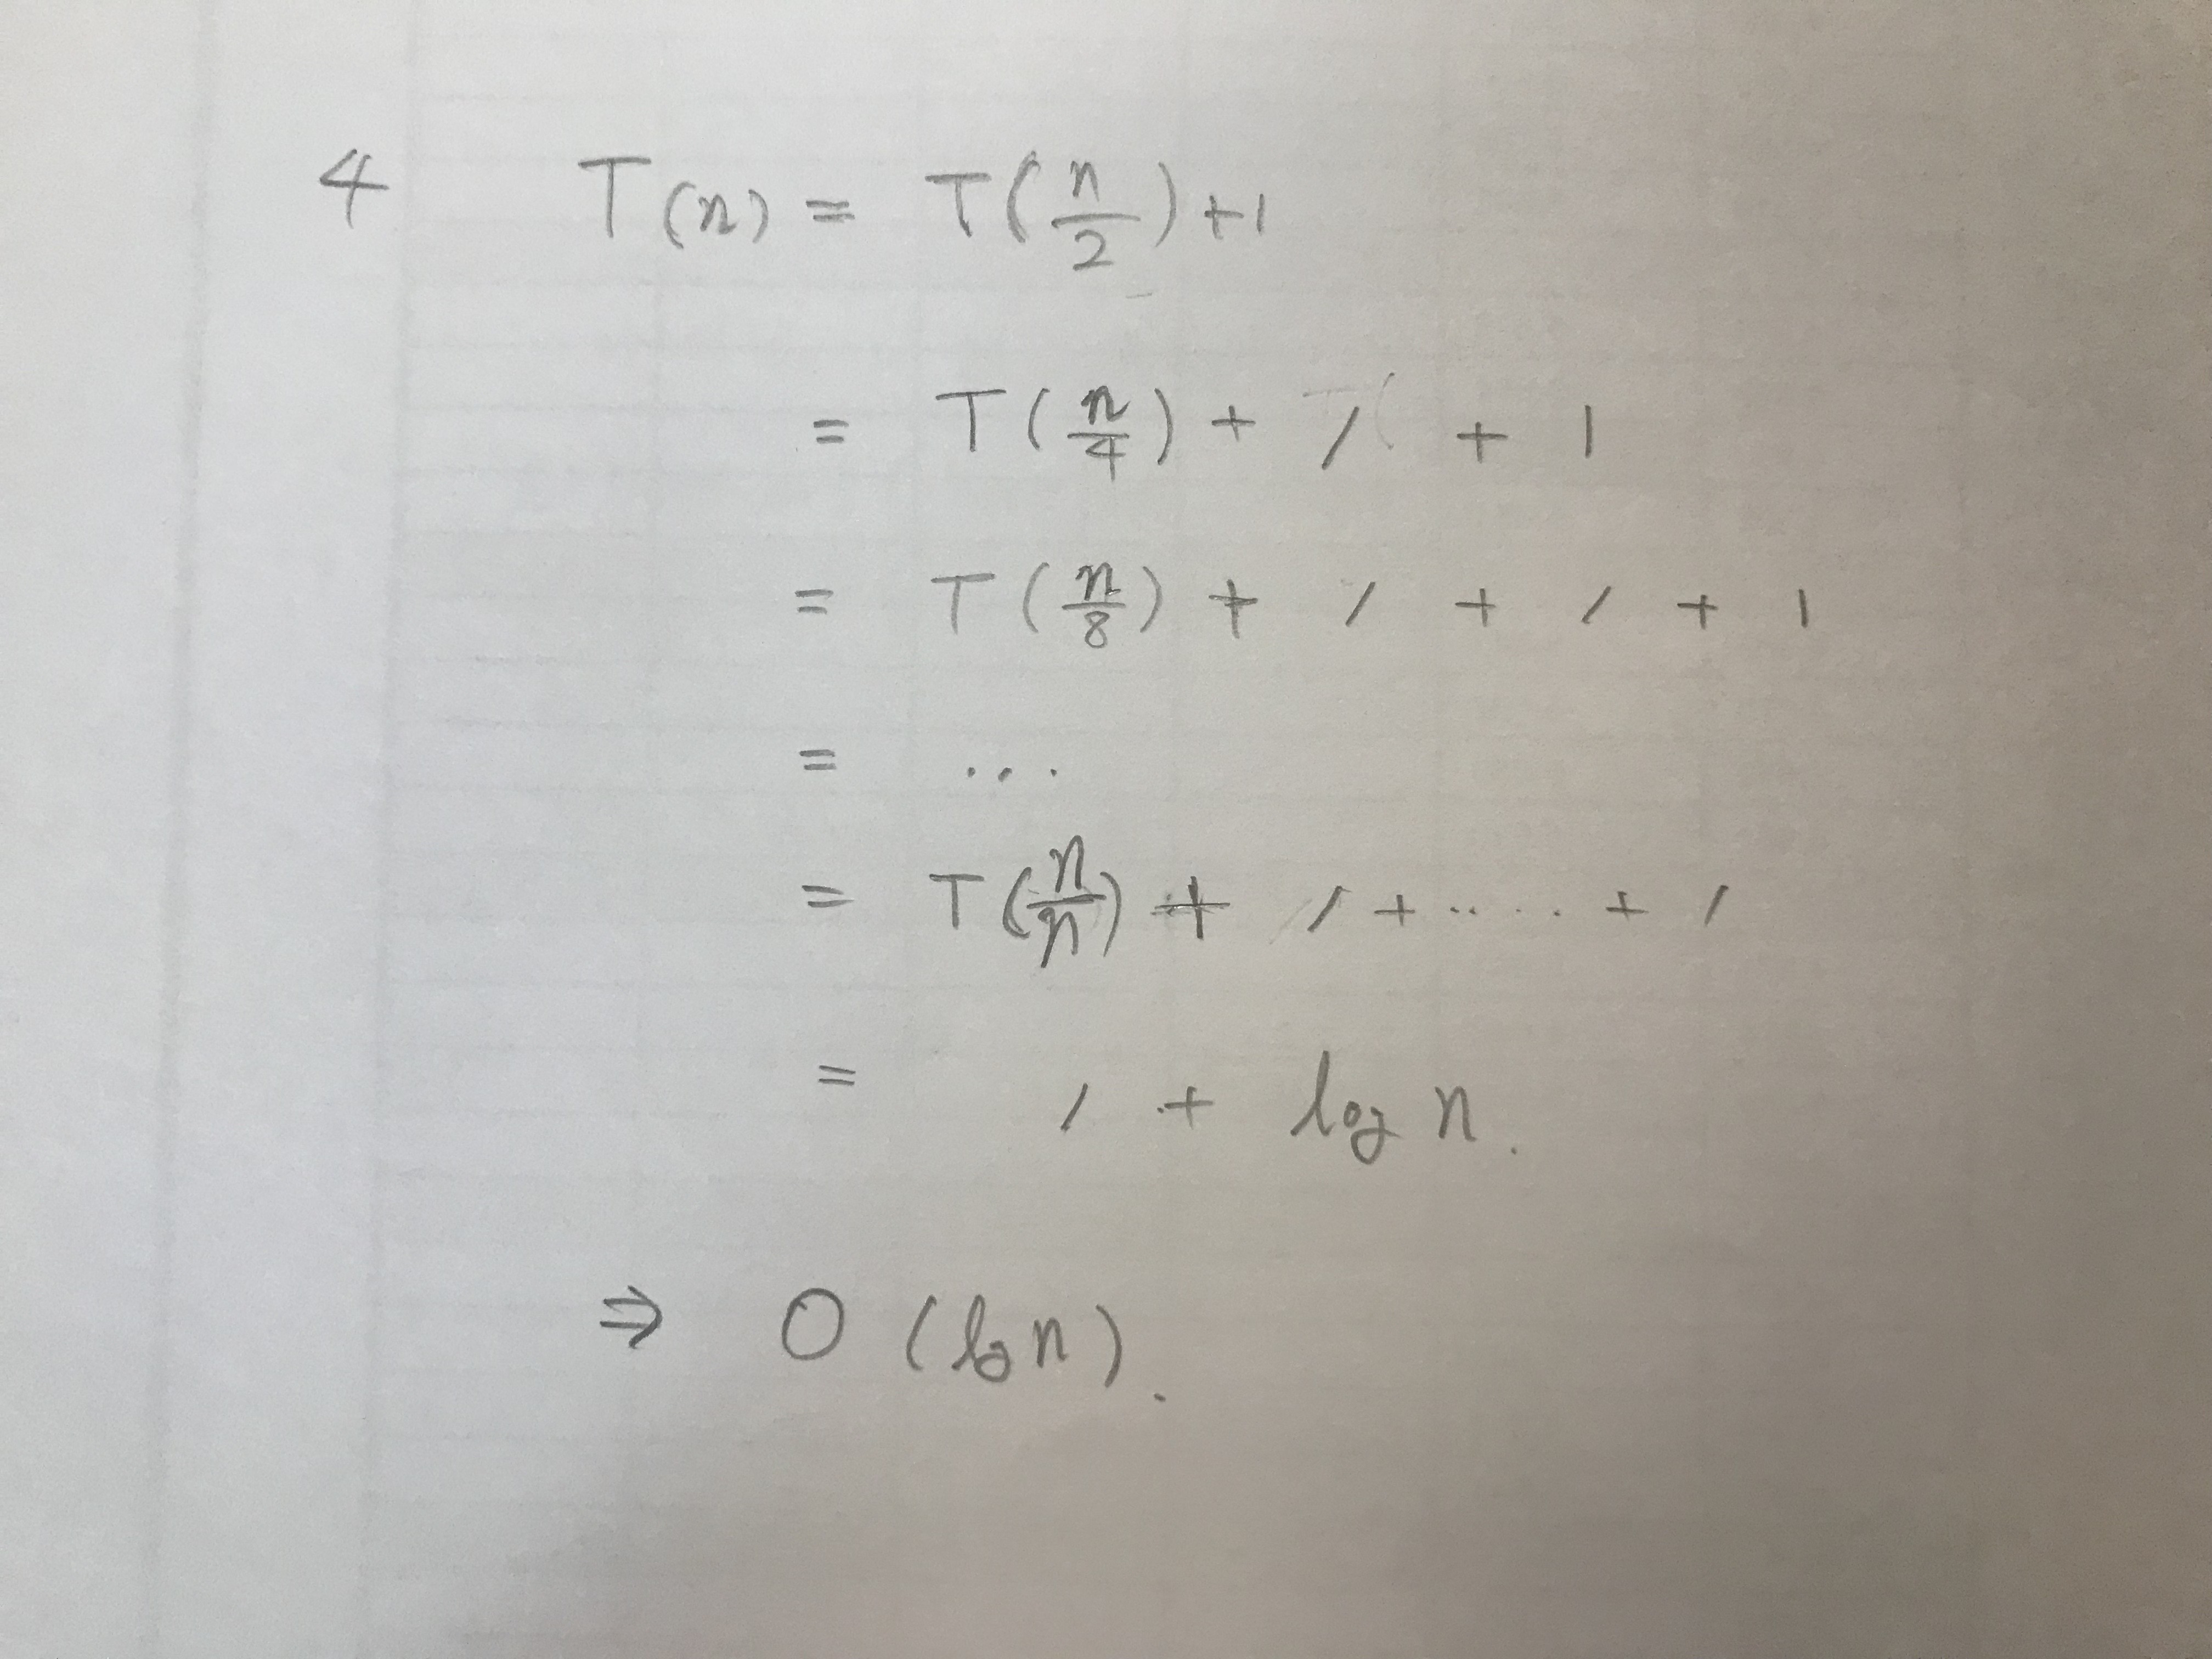 4 T(n) = T(n/2) + 1
= T(n/4) + 1 + 1
= T(n/8) + 1 + 1 + 1
= ...
= T(n/n) + 1 + ..... + 1
= 1 + log n.
⇒ O (log n).